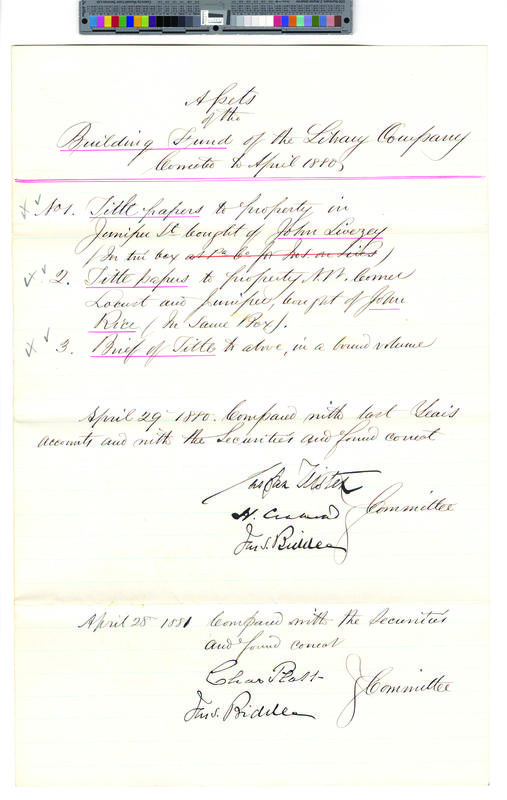 Assets
of the
Building Fund of the Library Company
to April 1880
No 1. Title papers to property in
Juniper St. bought of John Livezey
(In tin box at Pa Co for Ins on Lives)
2. Title papers to property N.W. Corner
Locust and Juniper, bought of John
Rice (In Same Box).
3. Brief of Title to above, in a bound volume
April 29 1880. Compared with last Years
accounts and with the Securities and found correct
Committee
Jas. S. Biddle
April 28 1881 Compared with the Securities
and found correct
Chas Platt
Committee
Jas. S. Biddle